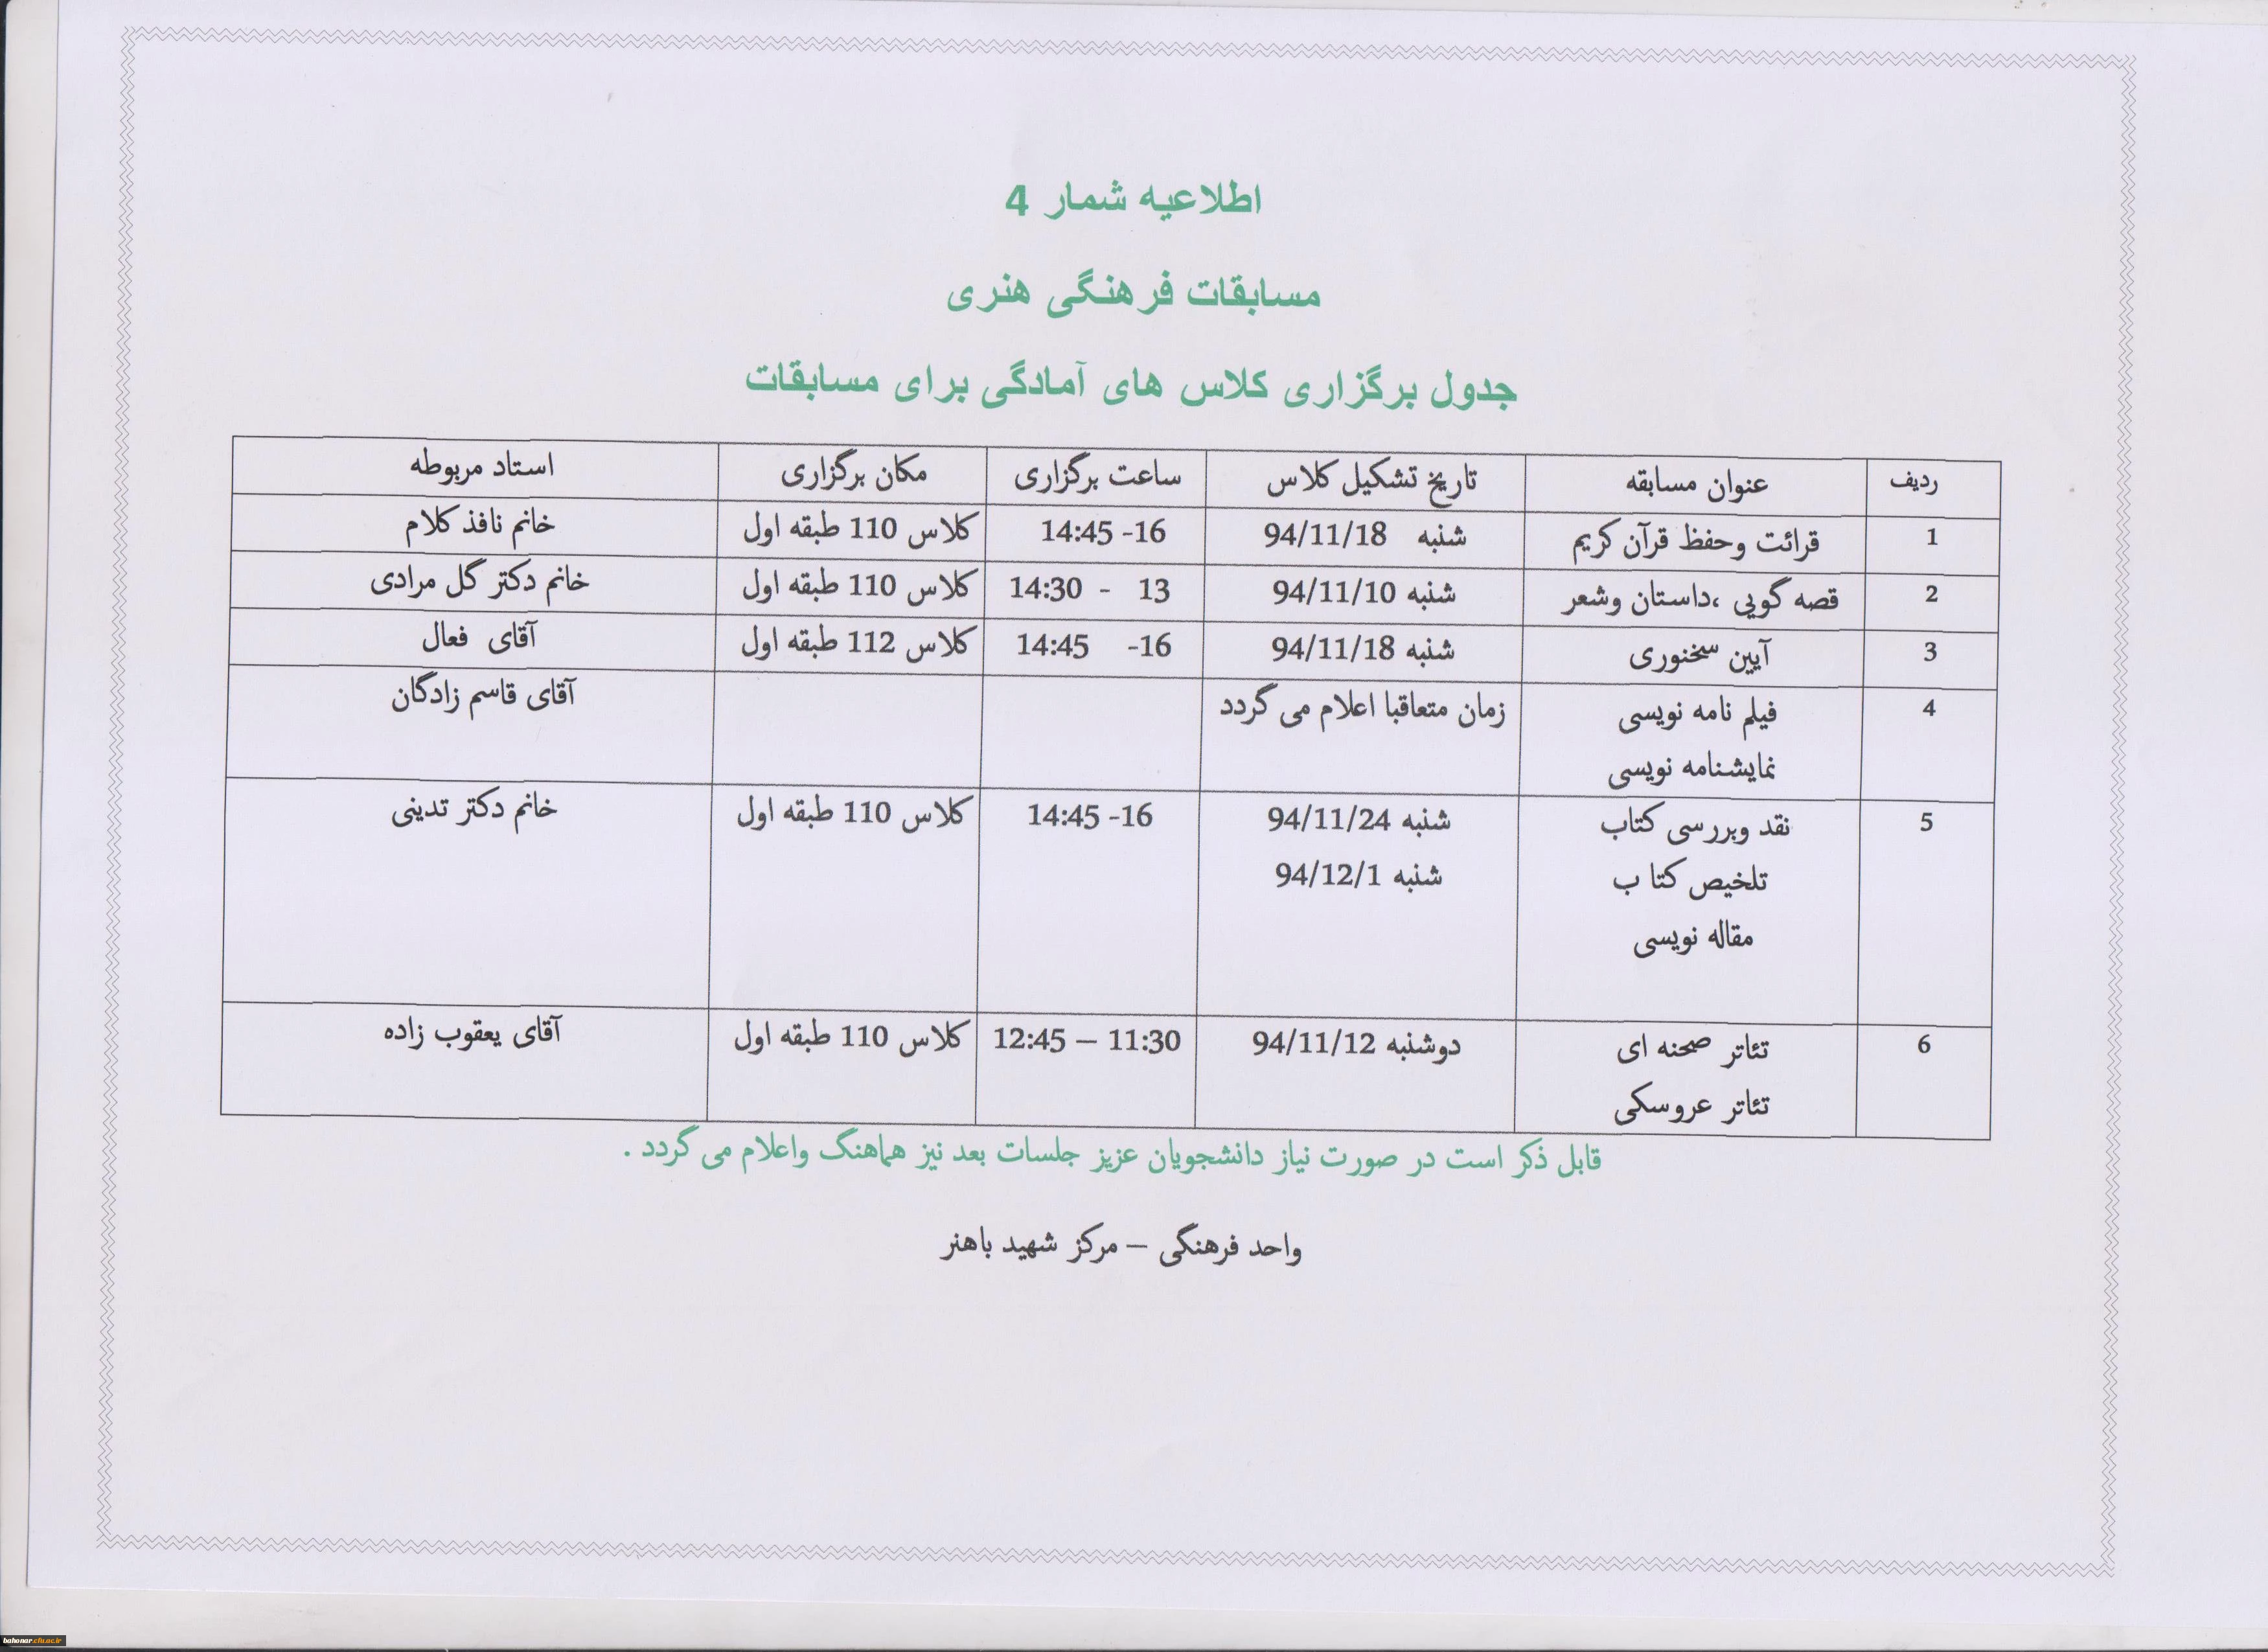 اطلاعیه شمار 4
مسابقات فرهنگی هنری
جدول برگزاری کلاس های آمادگی برای مسابقات
ردیف عنوان مسابقه تاریخ تشکیل کلاس ساعت برگزاری مکان برگزاری استاد مربوطه
1 قرائت وحفظ قرآن کریم شنبه 94/11/18 14:45 -16 کلاس 110 طبقه اول خانم نافذ کلام
2 قصه گویی ،داستان وشعر شنبه 94/11/10 14:30 - 13 کلاس 110 طبقه اول خانم دکتر گل مرادی
3 آیین سخنوری شنبه 94/11/18 14:45 -16 کلاس 112 طبقه اول آقای فعال
4 فیلم نامه نویسی زمان متعاقبا اعلام می گردد آقای قاسم زادگان
نمایشنامه نویسی
5 نقد وبررسی کتاب شنبه 94/11/24 14:45 -16 کلاس 110 طبقه اول خانم دکتر تدینی
تلخیص کتا ب شنبه 94/12/1
مقاله نویسی
6 تئاتر صحنه ای دوشنبه 94/11/12 12:45 – 11:30 کلاس 110 طبقه اول آقای یعقوب زاده
تئاتر عروسکی
قابل ذکر است در صورت نیاز دانشجویان عزیز جلسات بعد نیز هماهنگ واعلام می گردد .
واحد فرهنگی – مرکز شهید باهنر
bahonar.cfu.ac.ir